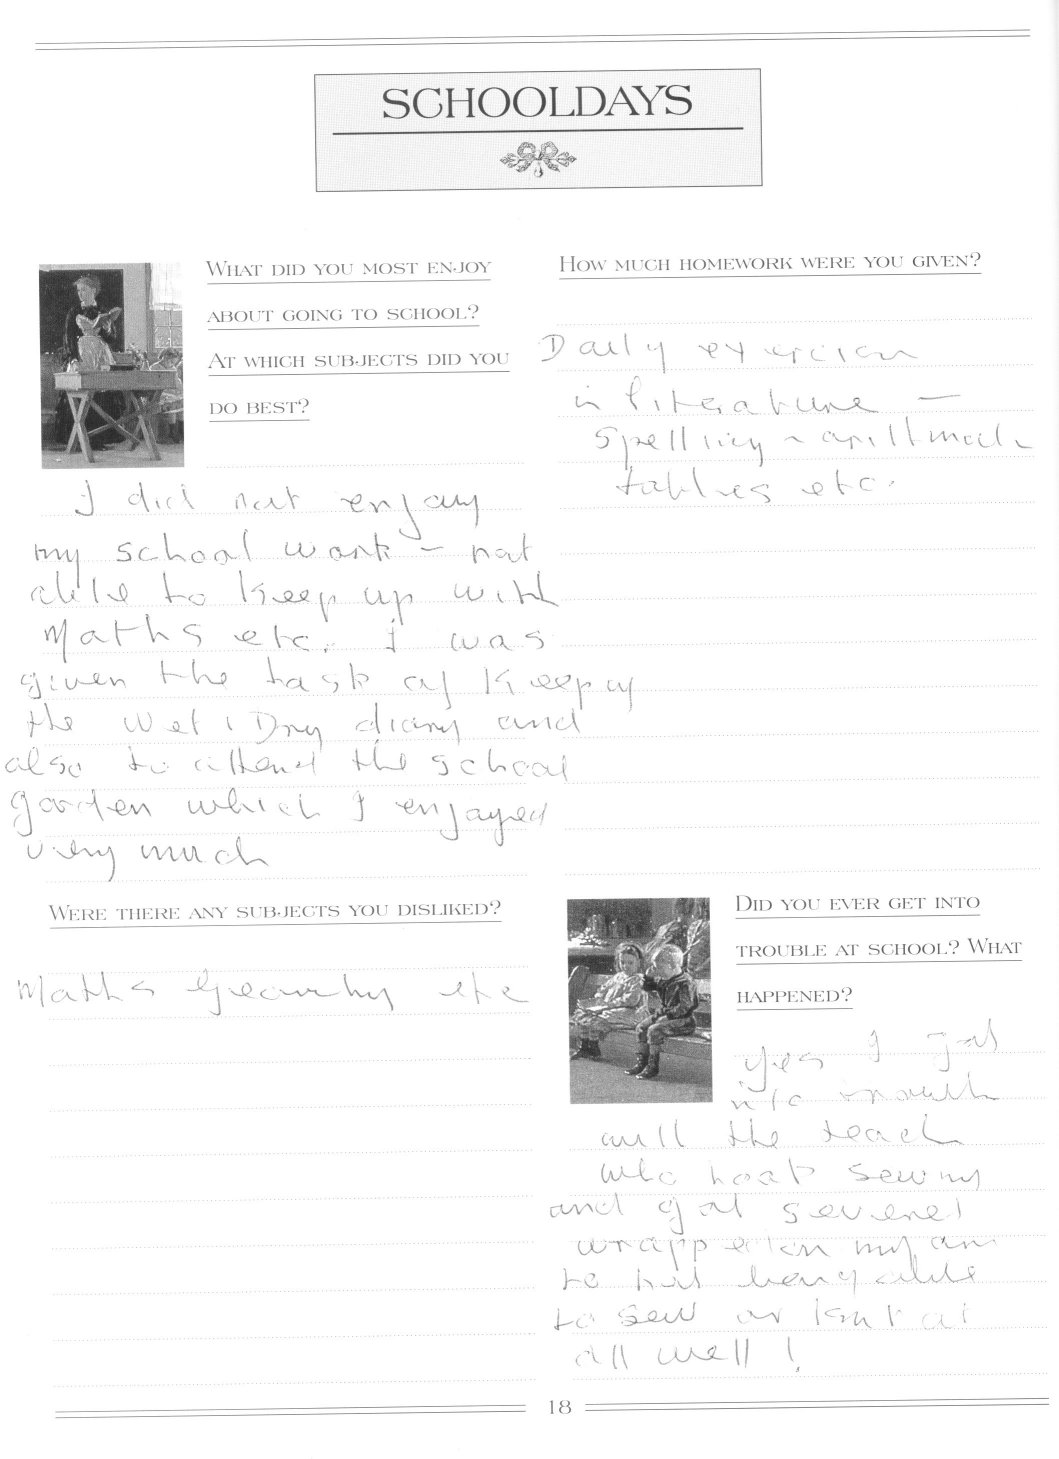 SCHOOLDAYS
WHAT DID YOU MOST ENJOY
ABOUT GOING TO SCHOOL?
AT WHICH SUBJECTS DID YOU
DO BEST?
I did not enjoy
my school work – not
able to keep up with
Maths etc. I was
given the task of keep of
the Wet & Dry diary and
also to attend the school
garden which I enjoyed
very much
HOW MUCH HOMEWORK WERE YOU GIVEN?
Daily exercise
in literature –
spelling ~
tables etc.
WERE THERE ANY SUBJECTS YOU DISLIKED?
Maths etc
DID YOU EVER GET INTO
TROUBLE AT SCHOOL? WHAT
HAPPENED?
yes I got
into
with the teach
who sewing
and got several
wrapped on my
to not being able
to sew or knit at
all well!
18